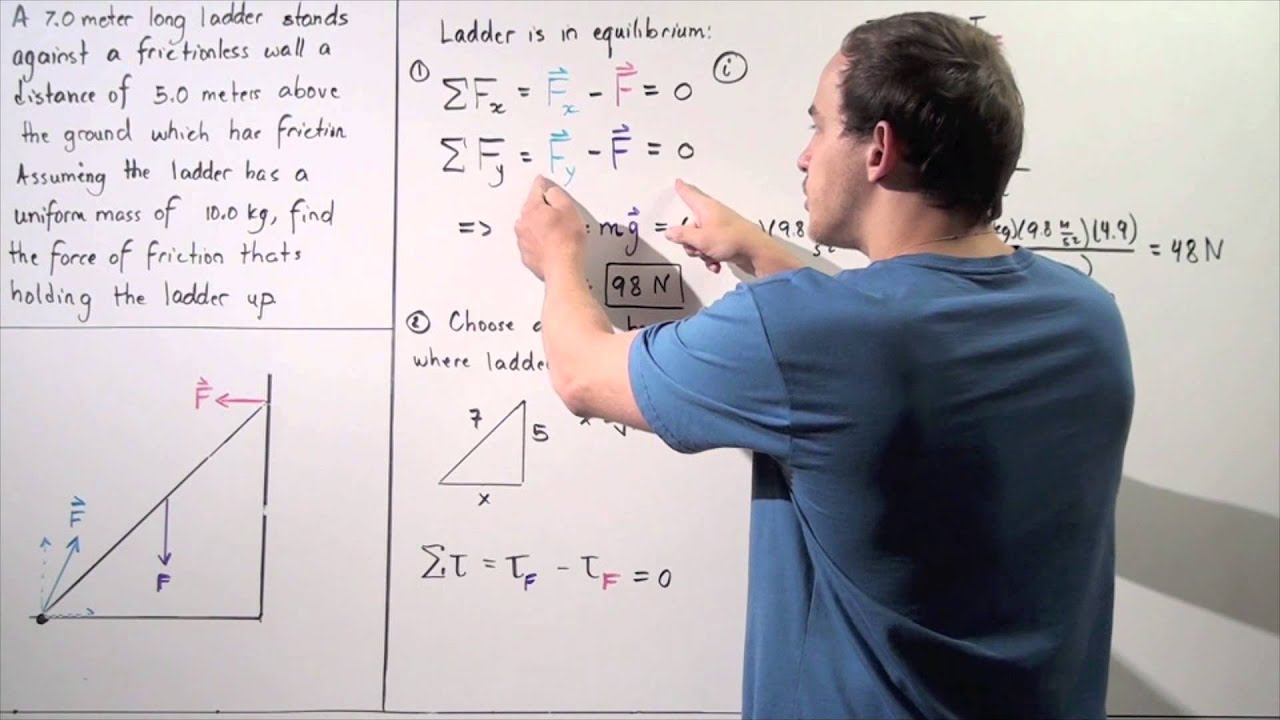 A 7.0 meter long ladder stands
against a frictionless wall a
distance of 5.0 meters above
the ground which has friction
Assuming the ladder has a
uniform mass of 10.0 kg, find
the force of friction thats
holding the ladder up.
F⃗
F⃗
F
Ladder is in equilibrium:
① ΣFₓ = F⃗ₓ - F⃗ = 0
ΣFᵧ = F⃗ᵧ - F⃗ = 0
=> mg⃗ = (9.8
98 N
② Choose
where ladder
7
5
x
Στ = τ_F - τ_F = 0
ⓘ
(9.8 m/s²)(4.9) = 48 N